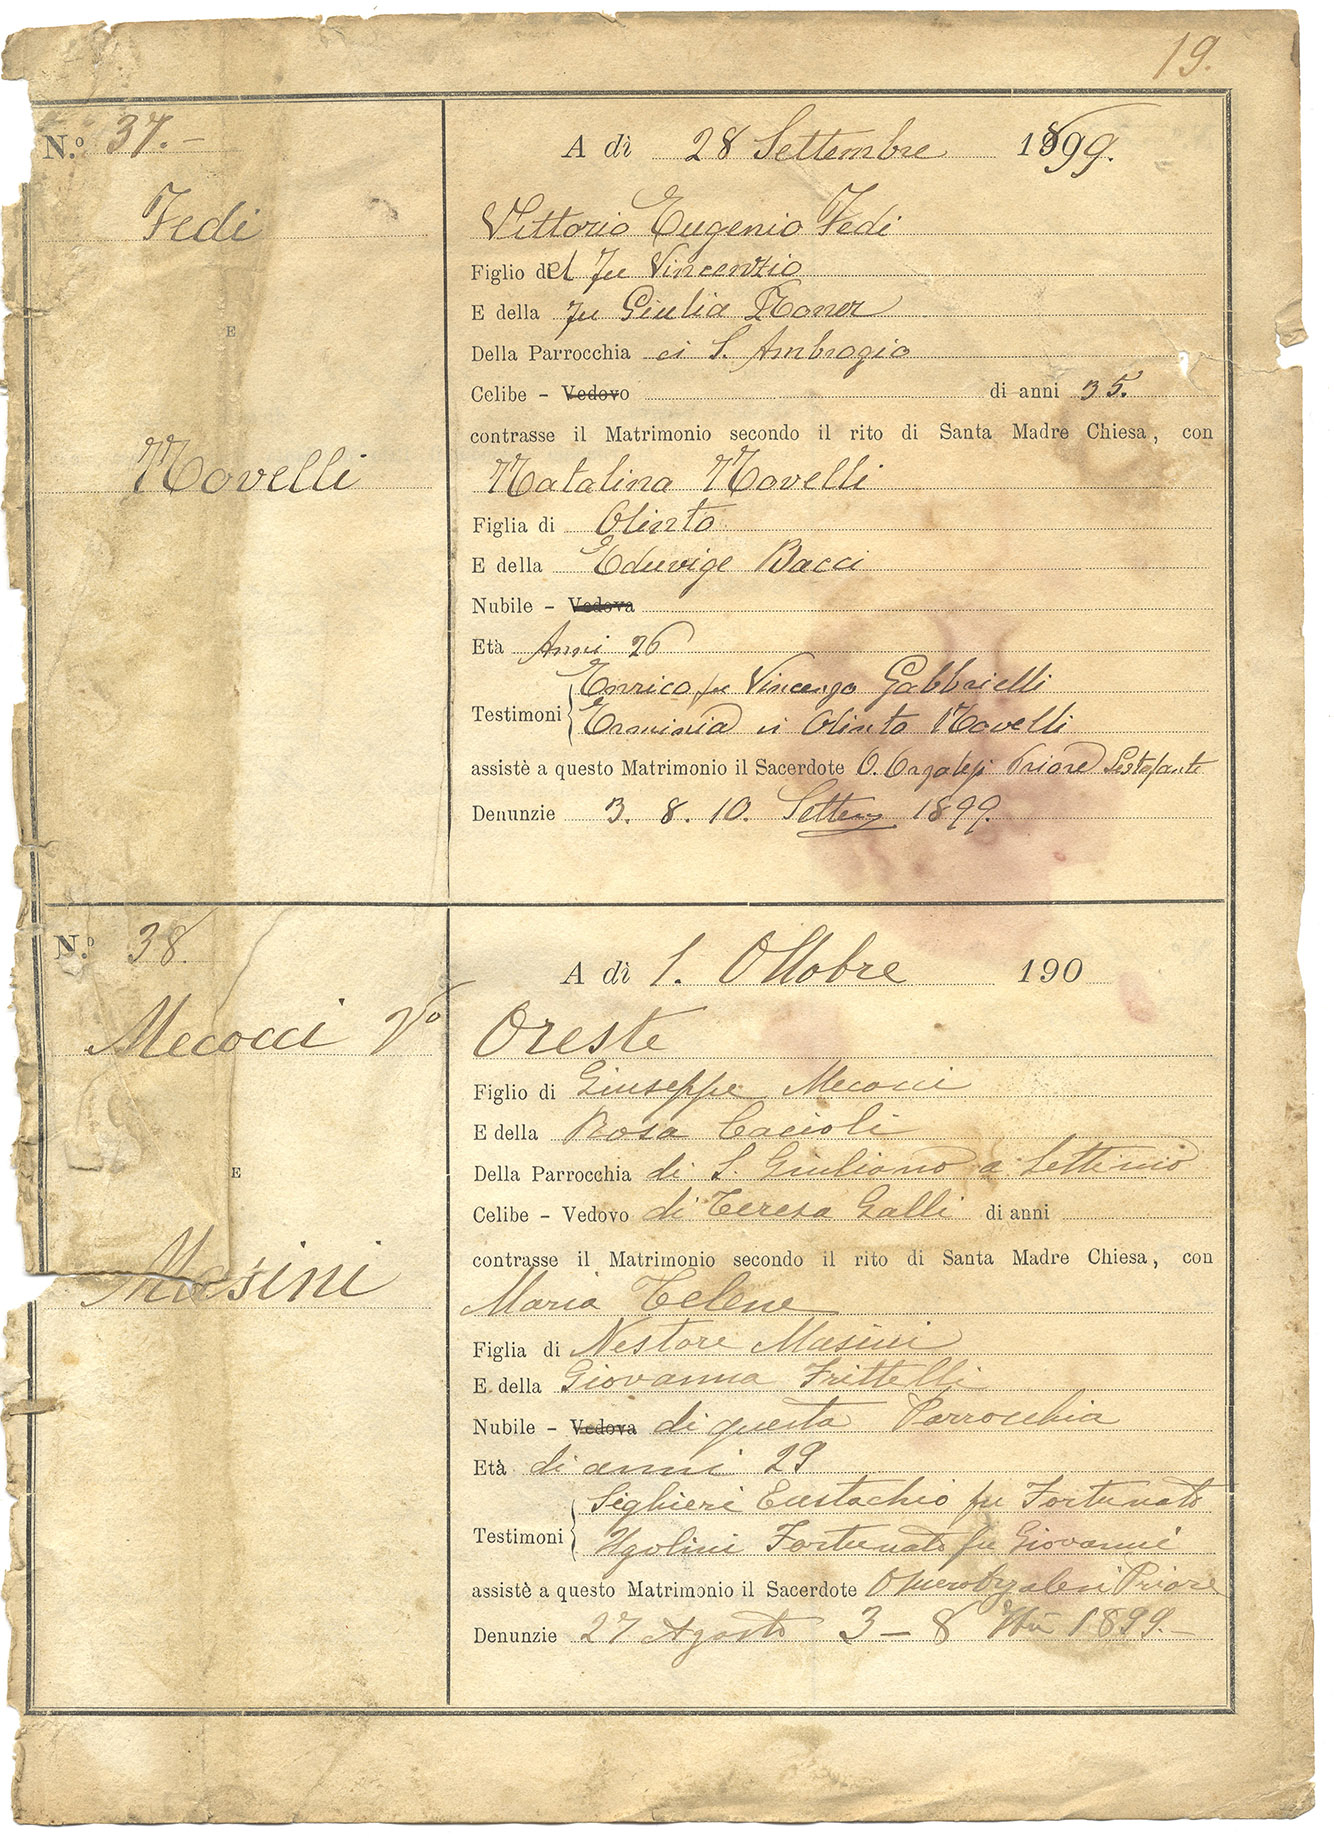 19.
N.º 37.-
Fedi
E
Novelli
A dì 28 Settembre 1899.
Vittorio Eugenio Fedi
Figlio del fu Vincenzio
E della fu Giulia
Della Parrocchia di S. Ambrogio
Celibe - Vedovo di anni 35.
contrasse il Matrimonio secondo il rito di Santa Madre Chiesa, con
Natalina Novelli
Figlia di Olinto
E della Eduvige Bacci
Nubile - Vedova
Età Anni 26
Enrico fu Vincenzo Gabbrielli
Testimoni
Erminia di Olinto Novelli
assistè a questo Matrimonio il Sacerdote O. Priore
Denunzie 3. 8. 10. 1899.
N.º 38.
Mecocci Vº
E
Masini
A dì 1. Ottobre 190
Oreste
Figlio di Giuseppe Mecocci
E della Rosa Cacioli
Della Parrocchia di S. Giuliano a Settimo
Celibe - Vedovo di Teresa Galli di anni
contrasse il Matrimonio secondo il rito di Santa Madre Chiesa, con
Maria
Figlia di Nestore Masini
E della Giovanna Frittelli
Nubile - Vedova di questa Parrocchia
Età di anni 29
Sighieri Eustachio fu Fortunato
Testimoni
Ugolini Fortunato fu Giovanni
assistè a questo Matrimonio il Sacerdote Priore
Denunzie 27 Agosto 3 - 8 1899.-